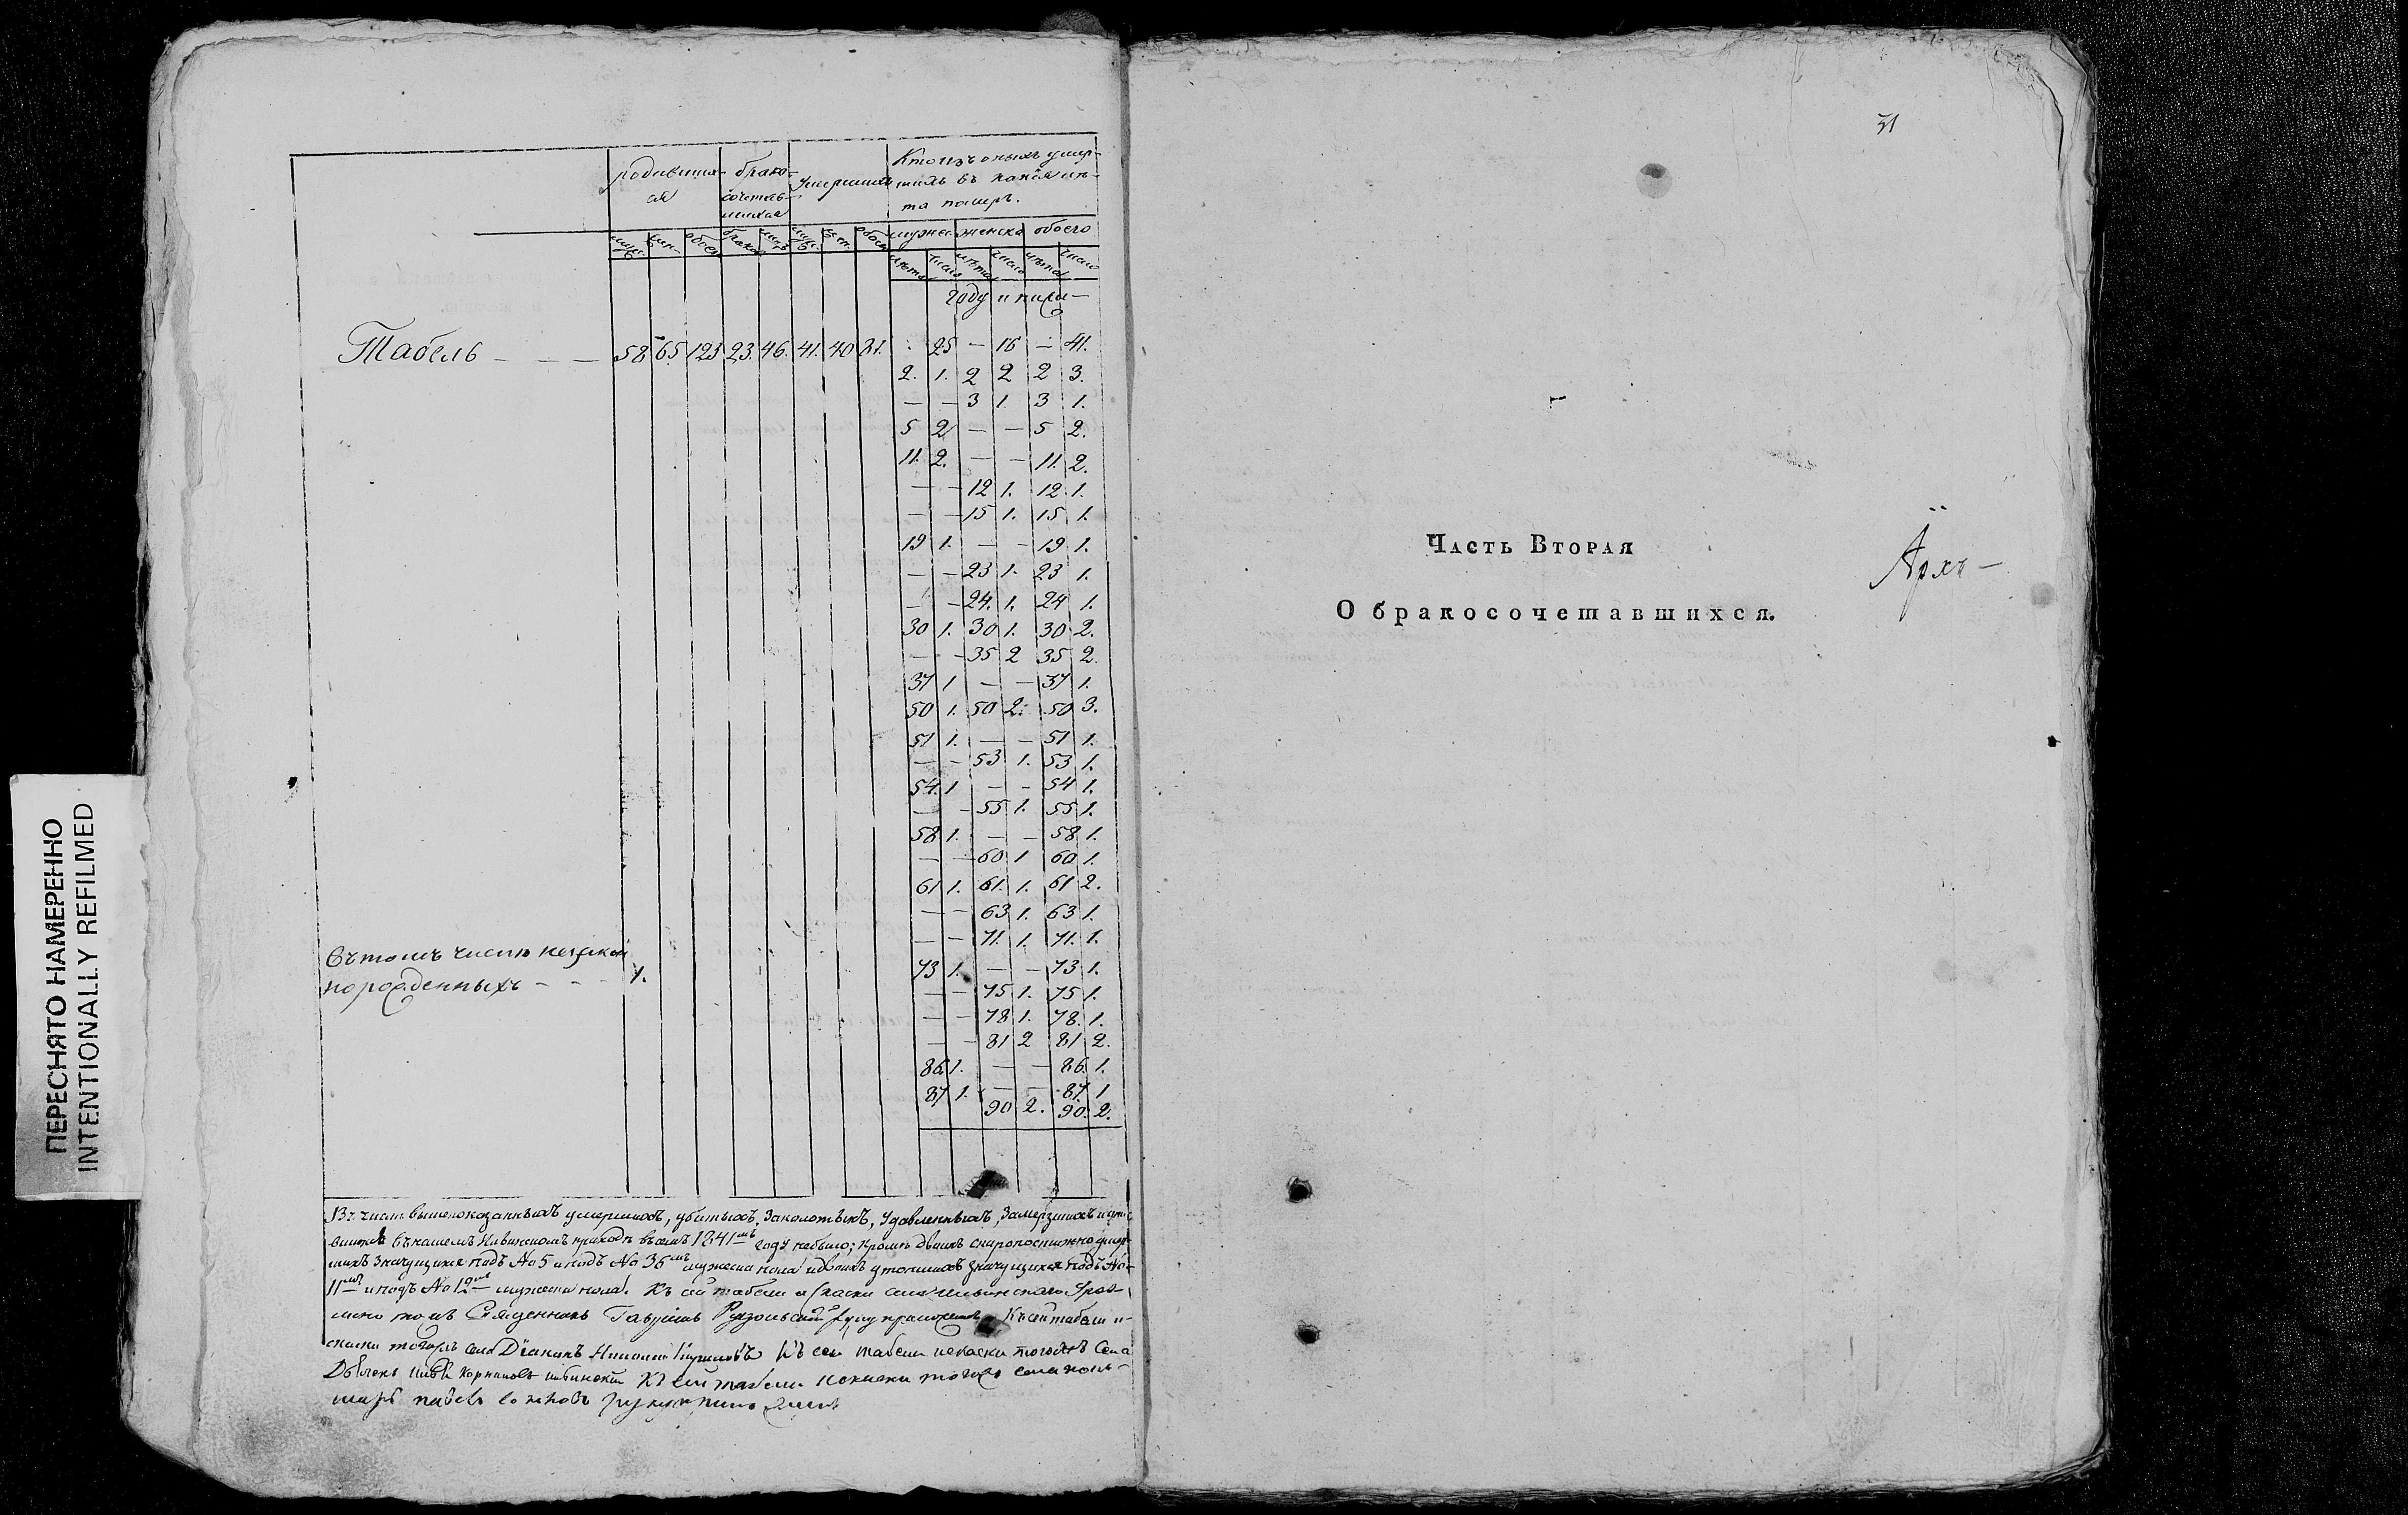 родивших-
ся
брако-
сочетав-
шихся
Умерших
Кто изъ оныхъ умер-
шихъ въ какія лѣ-
та померъ.
муж. жен. обоего браковъ лицъ муж. жен. обоего мужеска женска обоего
лѣта число лѣта число лѣта число
году и ниже
Табель — — — 58 65 123 23. 46. 41. 40 81. — 25 — 16 — 41.
2. 1. 2 2 2 3.
— — 3 1 3 1.
5 2 — — 5 2.
11. 2. — — 11. 2.
— — 12 1. 12 1.
— — 15 1. 15 1.
19 1. — — 19 1.
— — 23 1. 23 1.
— — 24. 1. 24 1.
30 1. 30 1. 30 2.
— — 35 2 35 2.
37 1 — — 37 1.
50 1. 50 2. 50 3.
51 1. — — 51 1.
— — 53 1. 53 1.
54. 1 — — 54 1.
— — 55 1. 55 1.
58 1. — — 58 1.
— — 60 1 60 1.
61 1. 61. 1. 61 2.
— — 63 1. 63 1.
— — 71. 1. 71. 1.
73 1. — — 73 1.
— — 75 1. 75 1.
— — 78 1. 78. 1.
— — 81 2 81 2.
86 1. — — 86. 1.
87 1. — — 87. 1
90 2. 90. 2.
въ томъ числѣ незакон
норожденныхъ — — — 1.
Въ числѣ вышепоказанныхъ умершихъ, убитыхъ, Заколотыхъ, Удавленныхъ, Замерзшихъ и
въ нашемъ Ильинскомъ приходѣ въ семъ 1841мъ году небыло; кромѣ двоихъ скоропостижно умер-
шихъ значущихся подъ № 5 и подъ № 36мъ мужеска пола и двоихъ утопшихъ значущихся подъ №
11мъ и подъ № 12мъ мужеска пола. Къ сей табели и скаски села Ильинскаго
Священникъ Гавріилъ руку приложилъ Къ сей табели и
скаски тогожъ села Діаконъ Николай Кириловъ Къ сей табели и скаски тогожъ Села
Дьячекъ Къ сей табели и скаски тогожъ села поно-
марь павелъ руку приложилъ
31
Часть Вторая
О бракосочетавшихся.
Арх —
ПЕРЕСНЯТО НАМЕРЕННО
INTENTIONALLY REFILMED